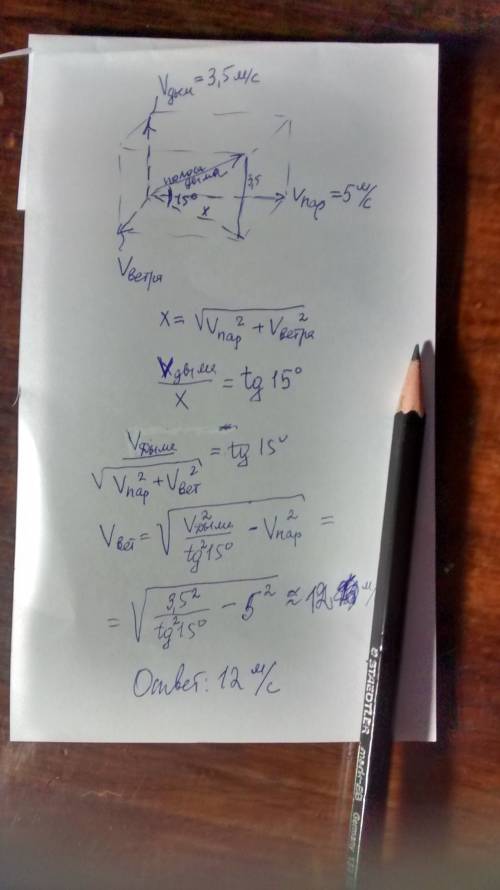 Vдым = 3,5 м/с
полоса
дыма
15°
x
3,5
Vпар = 5 м/с
Vветра
x = √(Vпар² + Vветра²)
Vдыма / x = tg 15°
Vдыма / √(Vпар² + Vвет²) = tg 15°
Vвет = √(Vдыма² / tg²15° − Vпар²) =
= √(3,5² / tg²15° − 5²) ≈ 12 м/
Ответ: 12 м/с
STAEDTLER
Germany